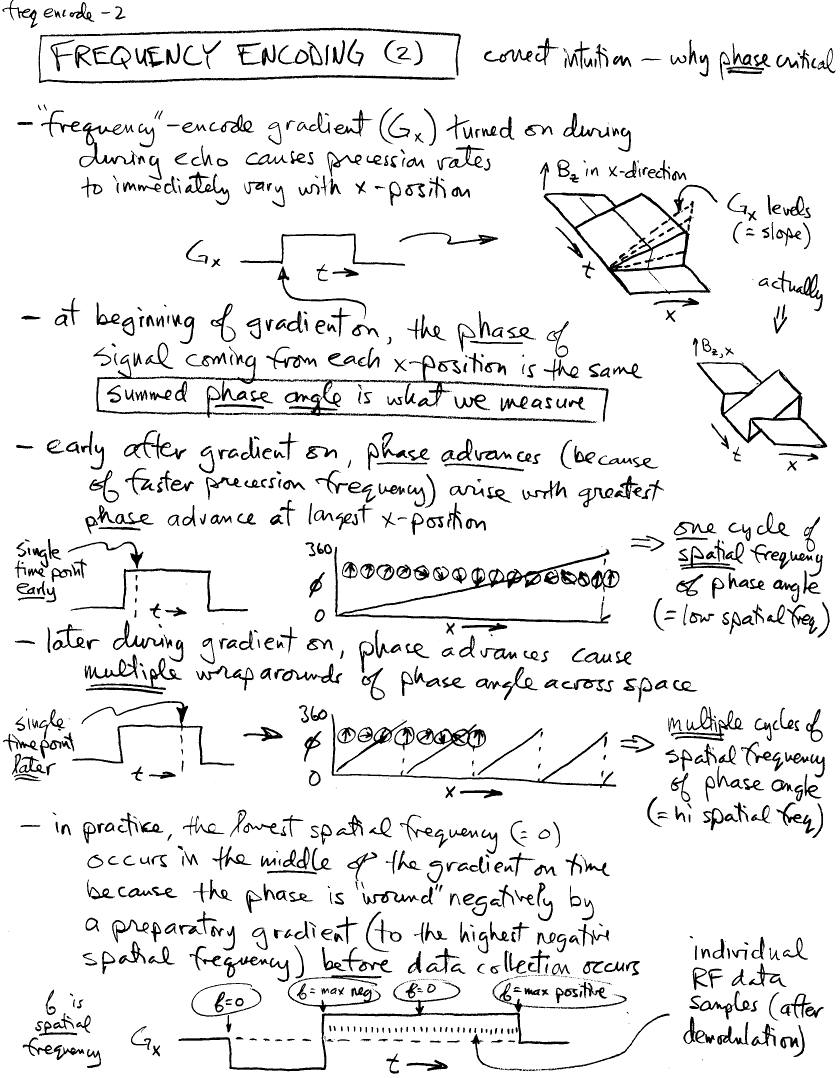 freq encode - 2
FREQUENCY ENCODING (2)
correct intuition – why phase critical
– "frequency"-encode gradient (Gx) turned on during
during echo causes precession rates
to immediately vary with x-position
Bz in x-direction
Gx levels
(= slope)
t
x
Gx
t
actually
Bz,x
t
x
– at beginning of gradient on, the phase of
signal coming from each x-position is the same
summed phase angle is what we measure
– early after gradient on, phase advances (because
of faster precession frequency) arise with greatest
phase advance at largest x-position
single
time point
early
t
360
ϕ
0
x
⇒ one cycle of
spatial frequency
of phase angle
(= low spatial freq)
– later during gradient on, phase advances cause
multiple wraparounds of phase angle across space
single
time point
later
t
360
ϕ
0
x
⇒ multiple cycles of
spatial frequency
of phase angle
(= hi spatial freq)
– in practice, the lowest spatial frequency (= 0)
occurs in the middle of the gradient on time
because the phase is "wound" negatively by
a preparatory gradient (to the highest negative
spatial frequency) before data collection occurs
individual
RF data
samples (after
demodulation)
f is
spatial
frequency
f=0
f=max neg
f=0
f=max positive
Gx
t